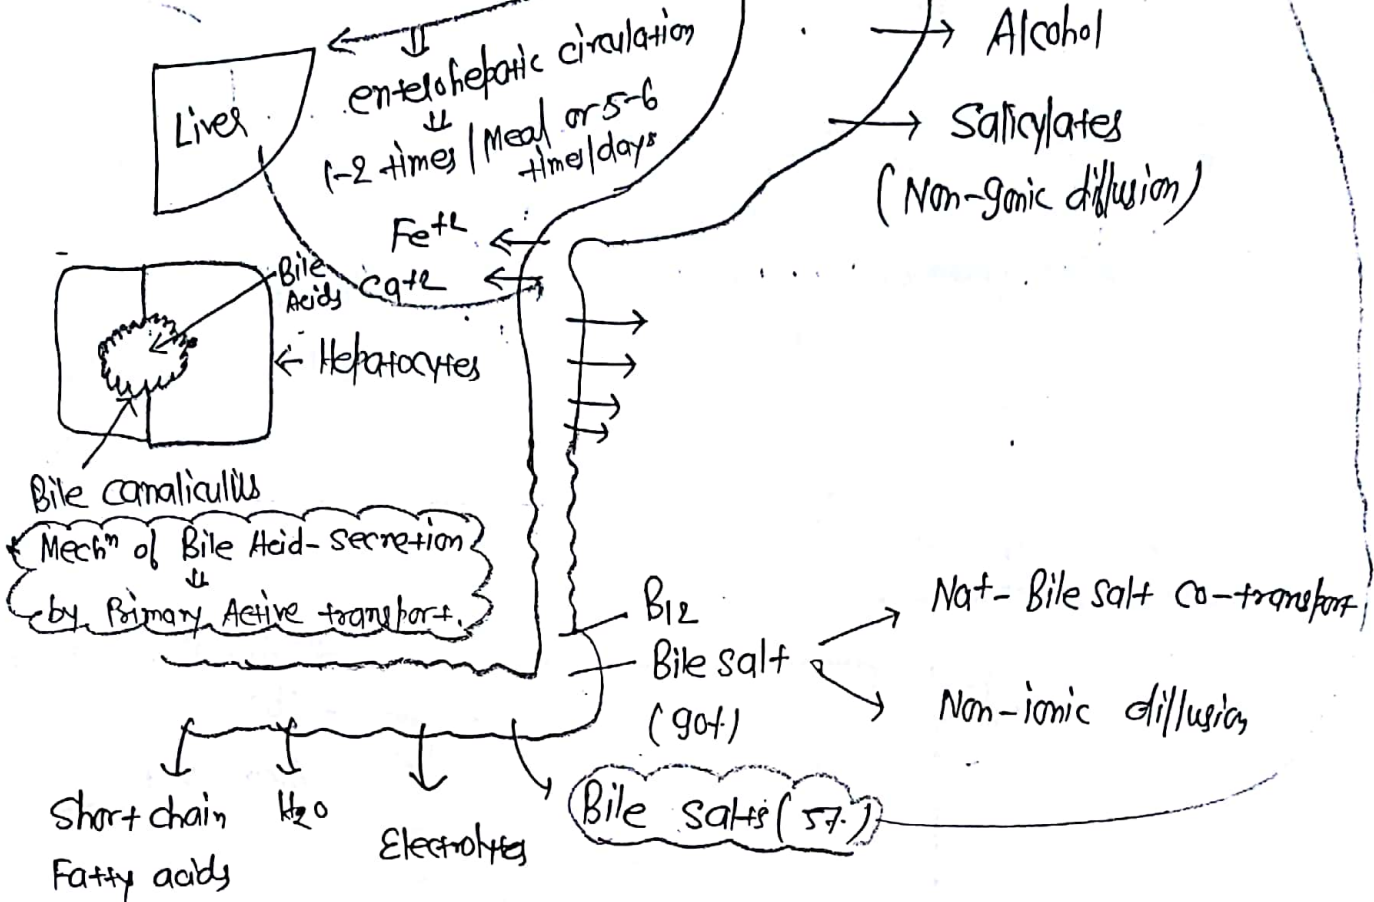 Alcohol
Liver
enterohepatic circulation
⇓
1-2 times / Meal or 5-6
times/days
Salicylates
(Non-gonic diffusion)
Fe+2
Ca+2
Bile
Acids
← Hepatocytes
Bile canaliculus
* Mechn of Bile Acid-secretion
⇓
by Primary Active transport.
B12
Bile salt
(90%)
Na+- Bile salt co-transport
Non-ionic diffusion
Short chain
Fatty acids
H2O
Electrolytes
Bile salts (5%)